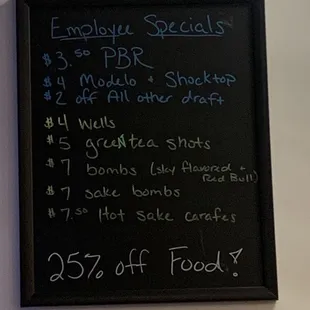 Employee Specials
$3.50 PBR
$4 Modelo + Shocktop
$2 off All other draft
$4 Wells
$5 greeNtea shots
$7 bombs (sky flavored + Red Bull)
$7 sake bombs
$7.50 Hot Sake Carafes
25% off Food!